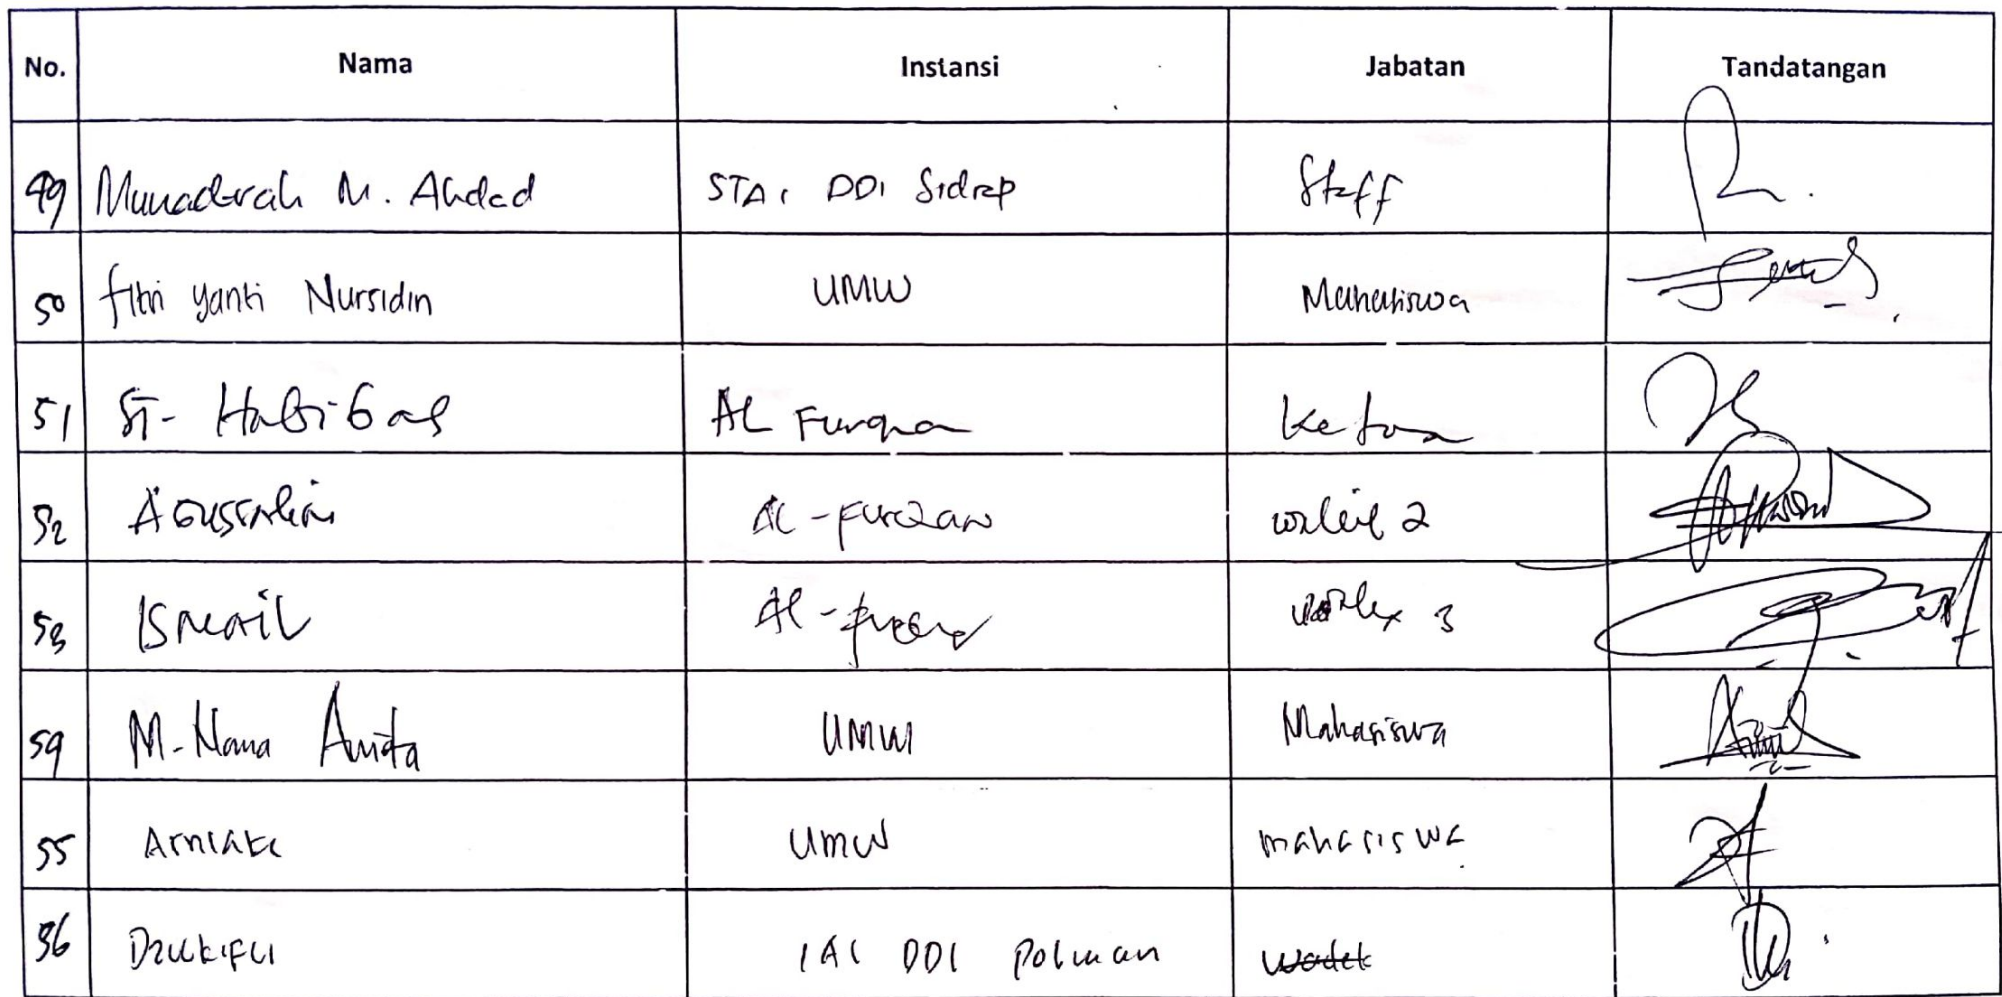 No. Nama Instansi Jabatan Tandatangan
49 Munadirah M. Ahdad STAI DDI Sidrap Staff
50 fitri yanti Nursidin UMW Mahasiswa
51 ST- Habibah AL Furqan Ketua
52 Agussalim AL-FURQAN wakil 2
53 ISMAIL Al-furqan 3
54 M. Nana Anita UMW Mahasiswa
55 Arniati UMW mahasiswa
56 Dzulkifli IAI DDI Polman wadek